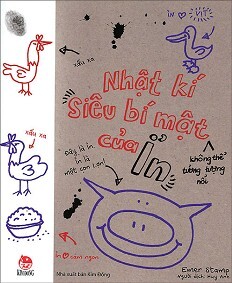 xấu xa
ỉn ♡ vịt
Nhật kí
Siêu bí mật
của Ỉn
không thể
tưởng tượng
nổi
xấu xa
Đây là ỉn.
ỉn là
một con lợn!
ỉn ♡ cám ngon
Emer Stamp
Người dịch: Huy Anh
Nhà xuất bản Kim Đồng
KIM ĐỒNG